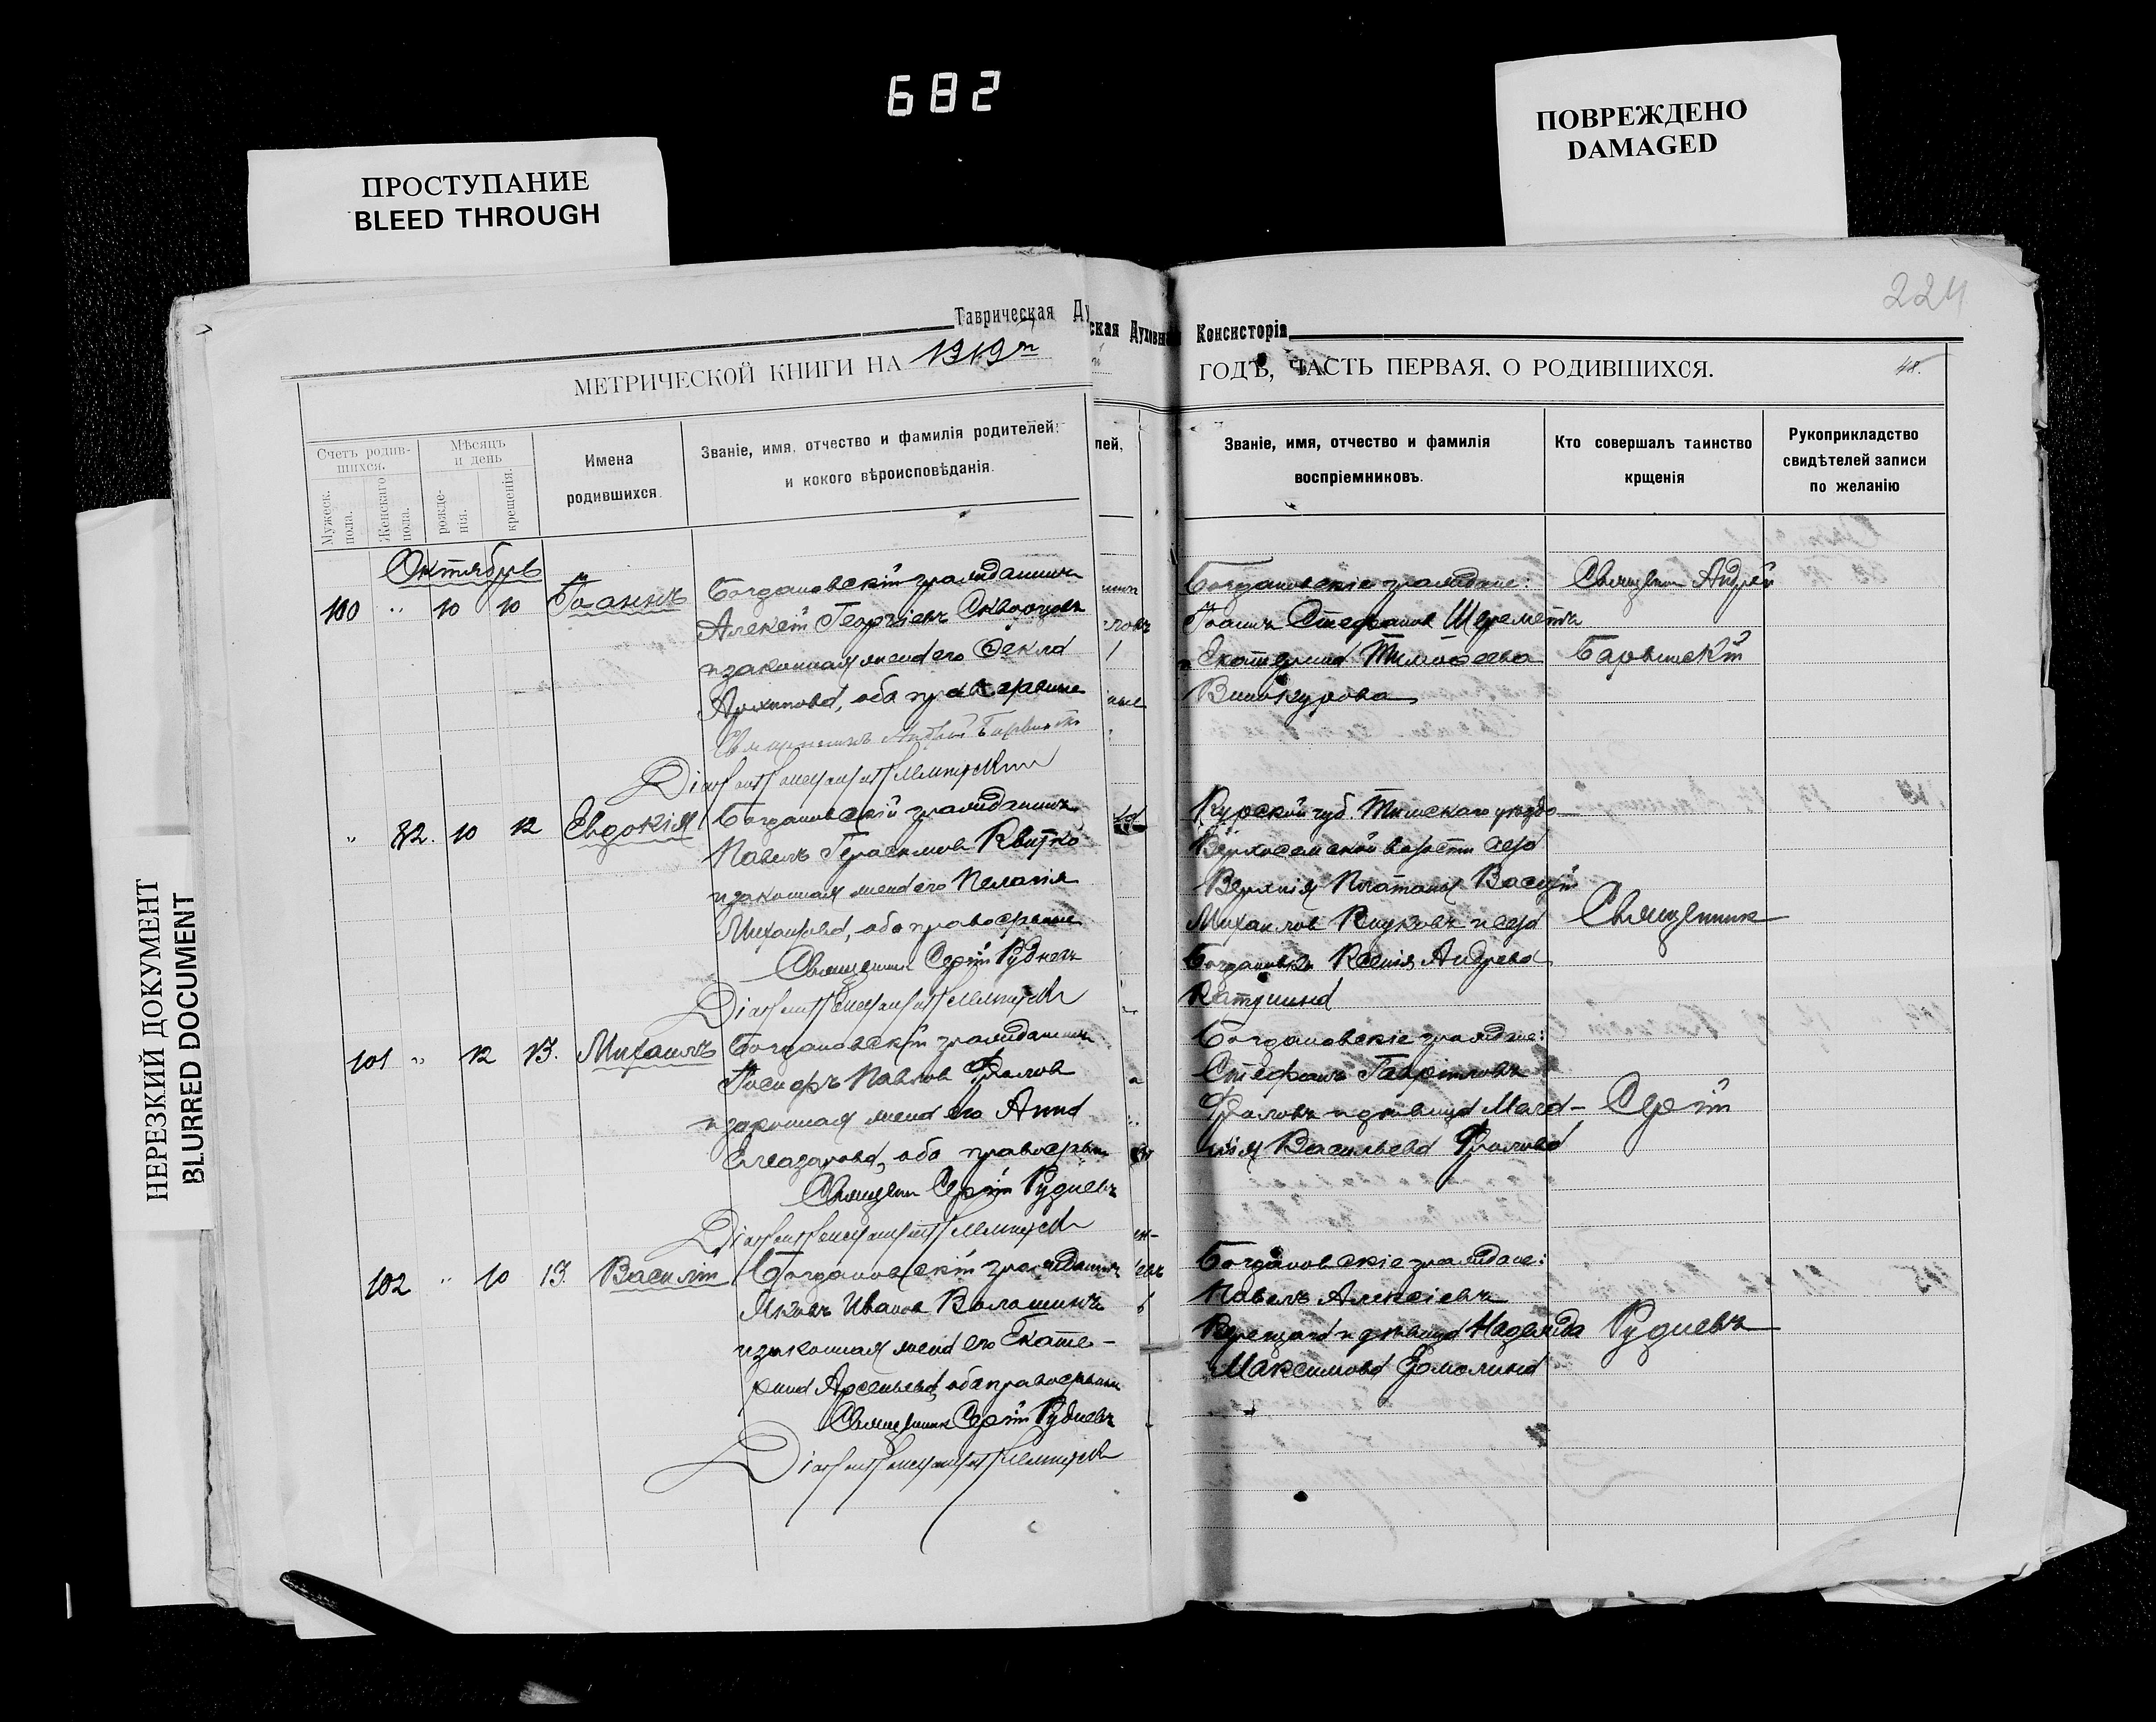 682
ПРОСТУПАНИЕ
BLEED THROUGH
ПОВРЕЖДЕНО
DAMAGED
НЕРЕЗКИЙ ДОКУМЕНТ
BLURRED DOCUMENT
224
Таврическая Ду
ская Духовная Консисторія
МЕТРИЧЕСКОЙ КНИГИ НА 1919 г.
ГОДЪ, ЧАСТЬ ПЕРВАЯ. О РОДИВШИХСЯ.
48.
Счетъ родив-
шихся.
Мужеск. пола.
Женскаго пола.
Мѣсяцъ
и день
рожде-
нія.
крещенія.
Имена
родившихся.
Званіе, имя, отчество и фамилія родителей,
и кокого вѣроисповѣданія.
лей,
Званіе, имя, отчество и фамилія
воспріемниковъ.
Кто совершалъ таинство
крщенія
Рукоприкладство
свидѣтелей записи
по желанію
Октябрь
100 " 10 10 Іоаннъ
Богдановскій гражданинъ
Алексій Георгіевъ Скворцовъ
и законная жена его Ѳекла
Архипова, оба православные
Священникъ Андрей Барвинскій
Богдановскіе граждане:
Іоаннъ Стефановъ Шереметъ
и Екатерина Тимоѳеева
Винокурова
Священникъ Андрей
Барвинскій
" 82. 10 12 Евдокія
Богдановскій гражданинъ
Павелъ Герасимовъ Квитко
и законная жена его Пелагія
Михайлова, оба православные
Священникъ Сергій Рудневъ
Курской губ. Тимскаго уѣзда
волости села
Василій
Михайловъ и села
Богдановки Ксенія Андреева
101 " 12 13. Михаилъ
Богдановскій гражданинъ
Іосифъ Павловъ Фроловъ
и законная жена его Анна
Елеазарова, оба православные
Священникъ Сергій Рудневъ
Богдановскіе граждане:
Стефанъ Гавріиловъ
Фроловъ и дѣвица
Васильева Фролова
102 " 10 13. Василій
Богдановскій гражданинъ
Яковъ Ивановъ Волошинъ
и законная жена его Екате-
рина Арсеньева, оба православные
Священникъ Сергій Рудневъ
Богдановскіе граждане:
Павелъ Алексіевъ
и дѣвица Надежда
Максимова Ермолина
Священникъ
Сергій
Рудневъ